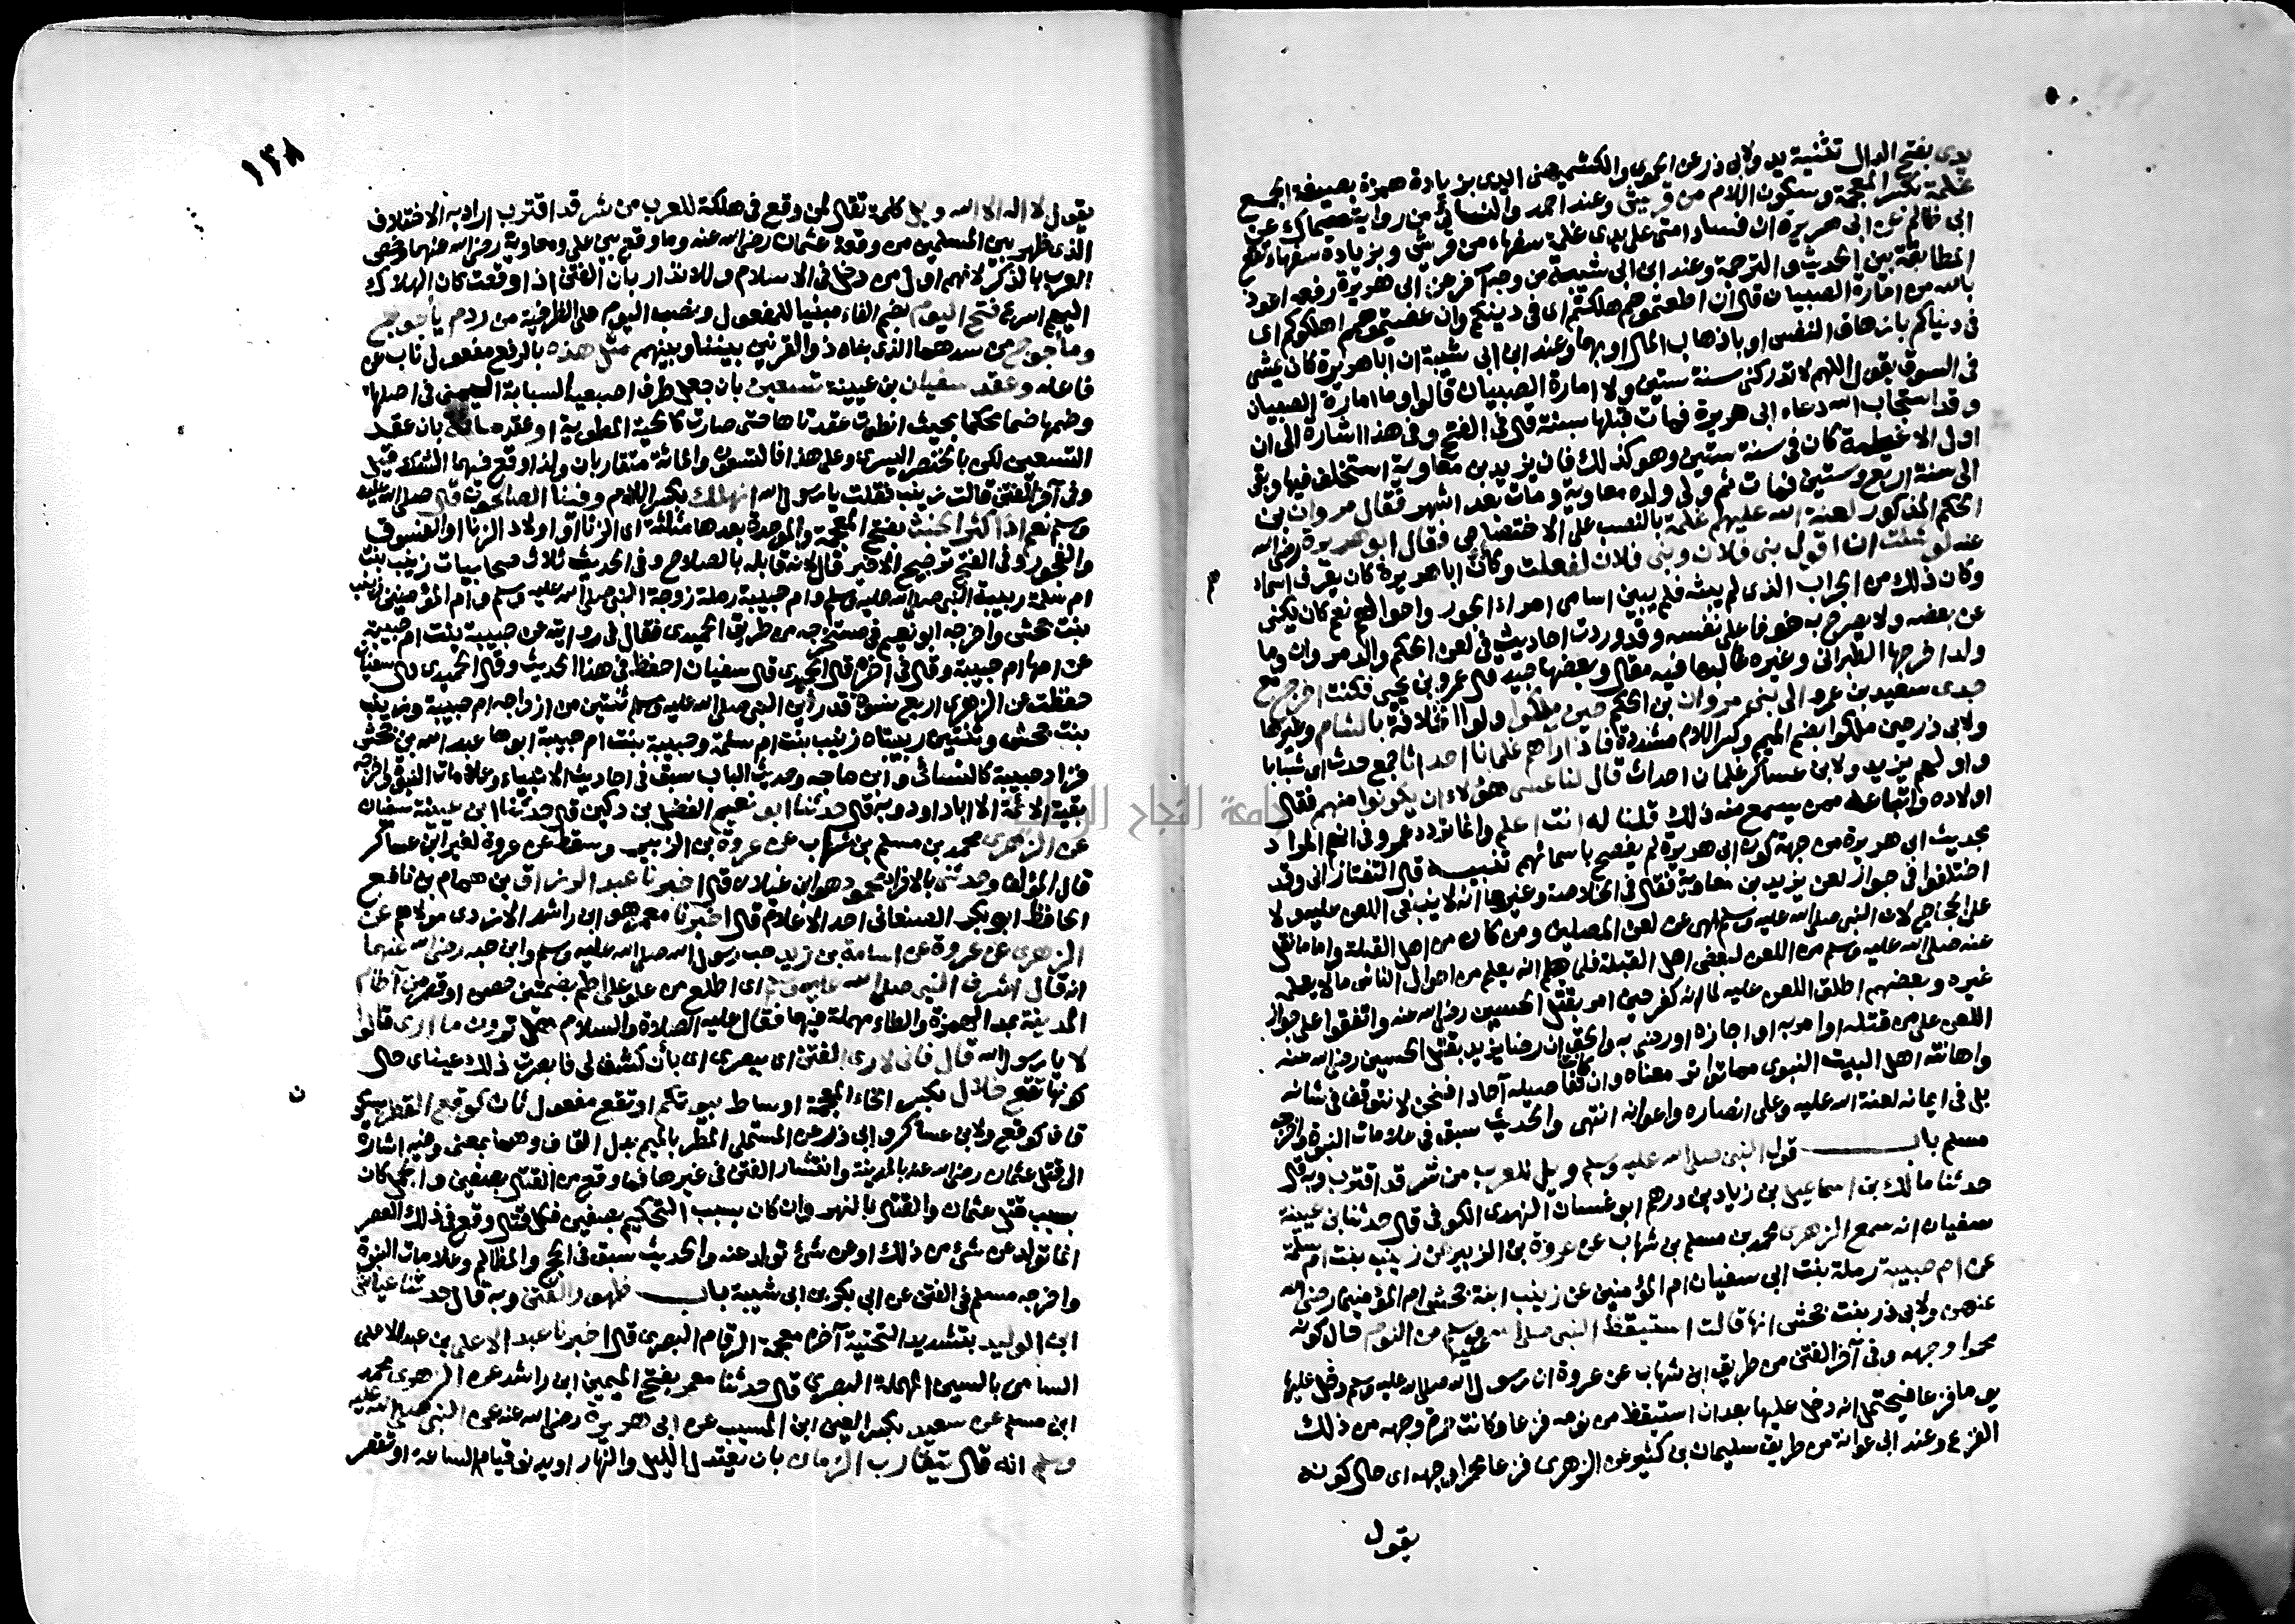 يدى بفتح الدال تثنية يد ولابى ذر عن الحموى والكشميهنى ايدى بزيادة همزة بصيغة الجمع
غلمة بكسر المعجمة وسكون اللام من قريش وعند احمد والنسائى من رواية سماك عن
ابى ظالم عن ابى هريرة ان فساد امتى على يدى غلمة سفهاء من قريش وبزيادة سفهاء تقع
المطابقة بين الحديث والترجمة وعند ابن ابى شيبة من وجه آخر عن ابى هريرة رفعه اعوذ
بالله من امارة الصبيان قال ان اطعتموهم هلكتم اى فى دينكم وان عصيتموهم اهلكوكم اى
فى دنياكم بازهاق النفس او باذهاب المال او بهما وعند ابن ابى شيبة ان ابا هريرة كان يمشى
فى السوق يقول اللهم لا تدركنى سنة ستين ولا امارة الصبيان قالوا وما امارة الصبيان
وقد استجاب الله دعاء ابى هريرة فمات قبلها بسنة قال فى الفتح وفى هذا اشارة الى ان
اول الاغيلمة كان فى سنة ستين وهو كذلك فان يزيد بن معاوية استخلف فيها وبقى
الى سنة اربع وستين فمات ثم ولى ولده معاوية ومات بعد اشهر فقال مروان بن
الحكم المذكور لعنة الله عليهم غلمة بالنصب على الاختصاص فقال ابو هريرة رضى الله
عنه لو شئت ان اقول بنى فلان وبنى فلان لفعلت وكان ابا هريرة كان يعرف اسماءهم
وكان ذلك من الجراب الذى لم يبثه فلم يبين اسامى امراء الجور واحوالهم نعم كان يكنى
عن بعضه ولا يصرح به خوفا على نفسه وقد وردت احاديث فى لعن الحكم والد مروان وما
ولد اخرجها الطبرانى وغيره غالبها فيه مقال وبعضها جيد قال عمرو بن يحيى فكنت اخرج مع
جدى سعيد بن عمرو الى بنى مروان بن الحكم حين ملكوا ولوا الخلافة بالشام وغيرها
ولابى ذر حين ملكوا بضم الميم وكسر اللام مشددة فاذا رآهم غلمانا احداثا جمع حدث اى شبابا
واولهم يزيد ولابن عساكر غلمان احداث قال لنا عسى هؤلاء ان يكونوا منهم فقال
اولاده واتباعه ممن يسمع منه ذلك قلنا له انت اعلم وانما تردد عمرو فى انهم المراد
بحديث ابى هريرة من جهة كون ابى هريرة لم يفصح باسمائهم تنبيه قال التفتازانى وقد
اختلفوا فى جواز لعن يزيد بن معاوية فقال فى الخلاصة وغيرها انه لا ينبغى اللعن عليه ولا
على الحجاج لان النبى صلى الله عليه وسلم نهى عن لعن المصلين ومن كان من اهل القبلة واما ما نقل
عنه صلى الله عليه وسلم من اللعن لبعض اهل القبلة فلما انه يعلم من احوال الناس ما لا يعلمه
غيره وبعضهم اطلق اللعن عليه لما انه كفر حين امر بقتل الحسين رضى الله عنه واتفقوا على جواز
اللعن على من قتله او امر به او اجازه او رضى به والحق ان رضا يزيد بقتل الحسين رضى الله عنه
واهانته اهل البيت النبوى مما تواتر معناه وان كان تفاصيله آحادا فنحن لا نتوقف فى شانه
بل فى ايمانه لعنة الله عليه وعلى انصاره واعوانه انتهى والحديث سبق فى علامات النبوة واخرجه
مسلم باب قول النبى صلى الله عليه وسلم ويل للعرب من شر قد اقترب وبه قال
حدثنا مالك بن اسماعيل بن زياد بن درهم ابو غسان النهدى الكوفى قال حدثنا ابن عيينة
سفيان انه سمع الزهرى محمد بن مسلم بن شهاب عن عروة بن الزبير عن زينب بنت ام سلمة
عن ام حبيبة رملة بنت ابى سفيان ام المؤمنين عن زينب ابنة جحش ام المؤمنين رضى الله
عنهن ولابى ذر بنت جحش انها قالت استيقظ النبى صلى الله عليه وسلم من النوم حال كونه
محمرا وجهه وفى آخر الفتن من طريق ابن شهاب عن عروة ان رسول الله صلى الله عليه وسلم دخل عليها
يوما فزعا فيحتمل انه دخل عليها بعد ان استيقظ من نومه فزعا وكانت حمرة وجهه من ذلك
الفزع وعند ابى عوانة من طريق سليمان بن كثير عن الزهرى فزعا محمرا وجهه اى حال كونه
يقول
١٣٨
يقول لا اله الا الله ويل كلمة تقال لمن وقع فى هلكة للعرب من شر قد اقترب اراد به الاختلاف
الذى ظهر بين المسلمين من وقعة عثمان رضى الله عنه وما وقع بين على ومعاوية رضى الله عنهما وخص
العرب بالذكر لانهم اول من دخل فى الاسلام وللانذار بان الفتن اذا وقعت كان الهلاك
اليهم اسرع فتح اليوم بضم الفاء مبنيا للمفعول ونصب اليوم على الظرفية من ردم يأجوج
ومأجوج من سدهما الذى بناه ذو القرنين بيننا وبينهم مثل هذه بالرفع مفعول ناب عن
فاعله وعقد سفيان بن عيينة تسعين بان جعل طرف اصبعيه السبابة اليمنى فى اصلها
وضمها ضما محكما بحيث انطوت عقدتاها حتى صارت كالحية المطوية او عقد مائة بان عقد
التسعين لكن بالخنصر اليسرى وعلى هذا فالتسعون والمائة متقاربان ولذا وقع فيهما الشك قيل
وفى آخر الفتن قالت زينب فقلت يا رسول الله انهلك بكسر اللام وفينا الصالحون قال صلى الله عليه
وسلم نعم اذا كثر الخبث بفتح المعجمة والموحدة بعدها مثلثة اى الزنا او اولاد الزنا او الفسوق
والفجور وفى الفتح ترجيح الاخير قال لانه قابله بالصلاح وفى الحديث ثلاث صحابيات زينب بنت
ام سلمة ربيبة النبى صلى الله عليه وسلم وام حبيبة رملة زوجة النبى صلى الله عليه وسلم وام المؤمنين زينب
بنت جحش واخرجه ابو نعيم فى مستخرجه من طريق الحميدى فقال فى روايته عن حبيبة بنت ام حبيبة
عن امها ام حبيبة وقال فى آخره قال الحميدى قال سفيان احفظ فى هذا الحديث وقال الحميدى قال سفيان
حفظت عن الزهرى اربع نسوة قد رأين النبى صلى الله عليه وسلم ثنتين من ازواجه ام حبيبة وزينب
بنت جحش وثنتين ربيبتاه زينب بنت ام سلمة وحبيبة بنت ام حبيبة ابوها عبد الله بن جحش
فزاد حبيبة كالنسائى وابن ماجه وحديث الباب سبق فى احاديث الانبياء وعلامات النبوة واخرجه
بقية الائمة الا ابا داود وبه قال حدثنا ابو نعيم الفضل بن دكين قال حدثنا ابن عيينة سفيان
عن الزهرى محمد بن مسلم بن شهاب عن عروة بن الزبير وسقط عن عروة لغير ابن عساكر
قال المؤلف وحدثنى بالافراد محمود هو ابن غيلان قال اخبرنا عبد الرزاق بن همام بن نافع
الحافظ ابو بكر الصنعانى احد الاعلام قال اخبرنا معمر هو ابن راشد الازدى مولاهم عن
الزهرى عن عروة عن اسامة بن زيد حب رسول الله صلى الله عليه وسلم وابن حبه رضى الله عنهما
انه قال اشرف النبى صلى الله عليه وسلم اى اطلع من علو على اطم بضمتين حصن او قصر من آطام
المدينة بمد الهمزة والطاء مهملة فيهما فقال عليه الصلاة والسلام هل ترون ما ارى قالوا
لا يا رسول الله قال فانى لارى الفتن اى ببصرى اى بأن كشف لى فابصرت ذلك عيناى حال
كونها تقع خلال بكسر الخاء المعجمة اوساط بيوتكم او تقع مفعول ثان كوقع القطر بسكون
قاف كوقع ولابن عساكر وابى ذر عن المستملى المطر بالميم بدل القاف وهما بمعنى وفيه اشارة
الى قتل عثمان رضى الله عنه بالمدينة وانتشار الفتن فى غيرها فما وقع من القتال بصفين والجمل كان
بسبب قتل عثمان والقتال بالنهروان كان بسبب التحكيم بصفين فكل قتال وقع فى ذلك العصر
انما تولد عن شئ من ذلك او عن شئ تولد عنه والحديث سبق فى الحج والمظالم وعلامات النبوة
واخرجه مسلم فى الفتن عن ابى بكر بن ابى شيبة باب ظهور الفتن وبه قال حدثنا عياش
ابن الوليد بتشديد التحتية آخره معجمة الرقام البصرى قال اخبرنا عبد الاعلى بن عبد الاعلى
السامى بالسين المهملة البصرى قال حدثنا معمر بفتح الميمين ابن راشد عن الزهرى محمد
ابن مسلم عن سعيد بكسر العين ابن المسيب عن ابى هريرة رضى الله عنه عن النبى صلى الله عليه
وسلم انه قال يتقارب الزمان بان يعتدل الليل والنهار او يدنو قيام الساعة او تقصر